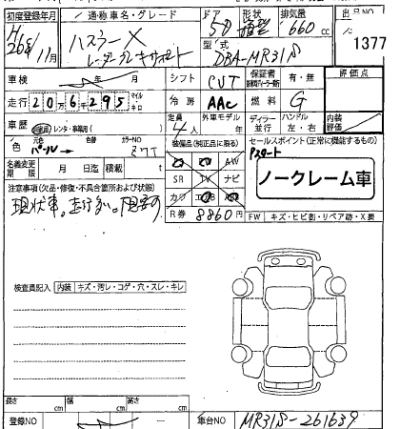 初度登録年月 / 通称車名・グレード ドア 形状 排気量 出品NO
H26年11月 ハスラーX 5D 箱型 660cc 1377
レーダーブレーキサポート 型式 DBA-MR31S
車検 年 月 シフト CVT 保証書 有・無 評価点
走行 20万6295 マイル キロ 冷房 AAC 燃料 G
車歴 自家用 レンタ・事業用( ) 定員 4人 外車モデル 年 ディーラー 並行 ハンドル 左・右 内装評価
色 元色 パール→ 色替 カラーNO Z7T 装備品(純正品に限る) セールスポイント(正常に機能するもの)
Pスタート
名義変更期限 月 日迄 積載 t SR TV ナビ ノークレーム車
AW
注意事項(欠品・修復・不具合箇所および状態) カワ エアB
現状車。走行多い。
R券 8860円 FW キズ・ヒビ割・リペア跡・X要
検査員記入 内装 キズ・汚レ・コゲ・穴・スレ・キレ
長さ cm 幅 cm 高さ cm
登録NO 車台NO MR31S-261639